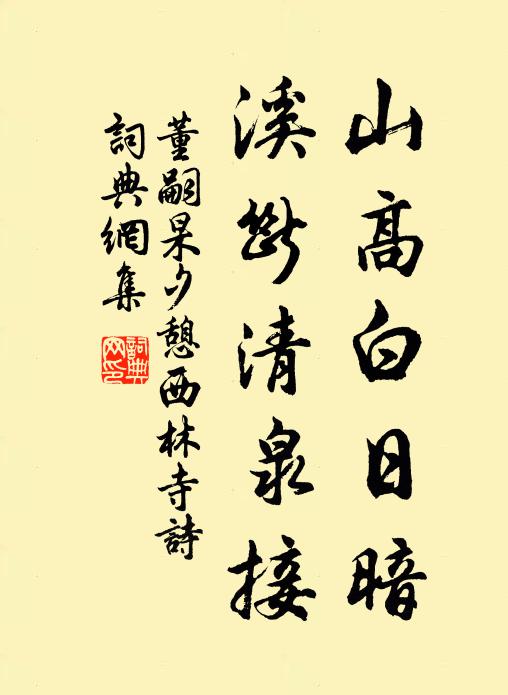 山高白日暗
溪斷清泉接
董嗣杲夕憩西林寺詩
詞典網集
詞典網印